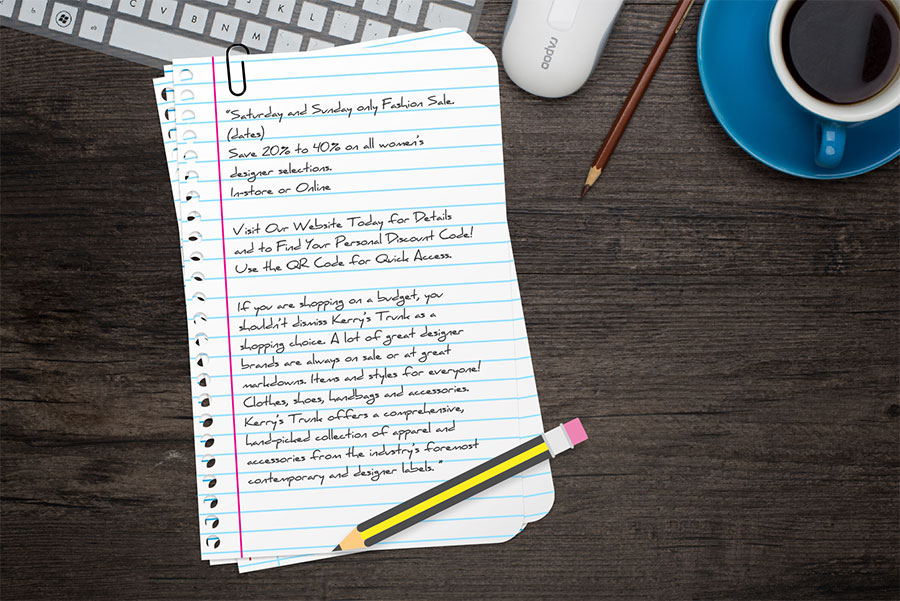 "Saturday and Sunday only Fashion Sale.
(dates)
Save 20% to 40% on all women's
designer selections.
In-store or Online
Visit Our Website Today for Details
and to Find Your Personal Discount Code!
Use the QR Code for Quick Access.
If you are shopping on a budget, you
shouldn't dismiss Kerry's Trunk as a
shopping choice. A lot of great designer
brands are always on sale or at great
markdowns. Items and styles for everyone!
Clothes, shoes, handbags and accessories.
Kerry's Trunk offers a comprehensive,
hand-picked collection of apparel and
accessories from the industry's foremost
contemporary and designer labels."
rapoo